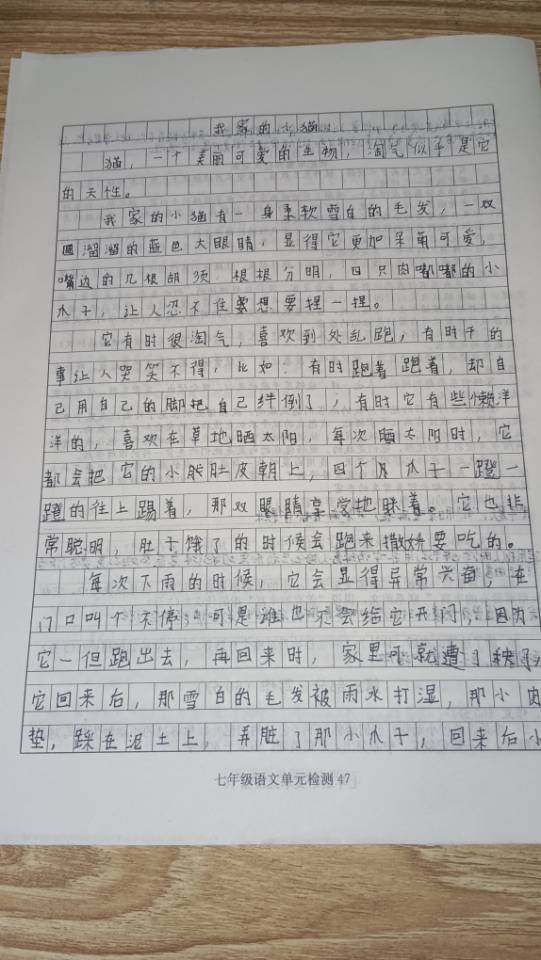 我家的小猫
猫，一个美丽可爱的生物，淘气似乎是它
的天性。
我家的小猫有一身柔软雪白的毛发，一双
圆溜溜的蓝色大眼睛，显得它更加呆萌可爱，
嘴边的几根胡须 根根分明，四只肉嘟嘟的小
爪子，让人忍不住想要捏一捏。
它有时很淘气，喜欢到处乱跑，有时干的
事让人哭笑不得，比如：有时跑着跑着，却自
己用自己的脚把自己绊倒了；有时它有些懒洋
洋的，喜欢在草地晒太阳，每次晒太阳时，它
都会把它的小肚皮朝上，四个爪子一蹬一
蹬的往上踢着，那双眼睛享受地眯着。它也非
常聪明，肚子饿了的时候会跑来撒娇要吃的。
每次下雨的时候，它会显得异常兴奋，在
门口叫个不停，可是谁也不会给它开门，因为
它一但跑出去，再回来时，家里可就遭了秧了，
它回来后，那雪白的毛发被雨水打湿，那小肉
垫，踩在泥土上，弄脏了那小爪子，回来后小
七年级语文单元检测47